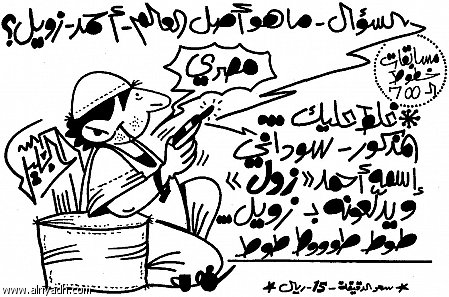 السؤال - ما هو أصل العالم - أحمد - زويل؟
مسابقات
خطوط
الـ 700
مصري
* غلط عليك ...
الدكتور - سوداني
إسمه أحمد «زول»
ويدلعونه بـ زويل ...
طوط طوووط طوط
* سعر الدقيقة - 15 - ريال *
www.alriyadh.com